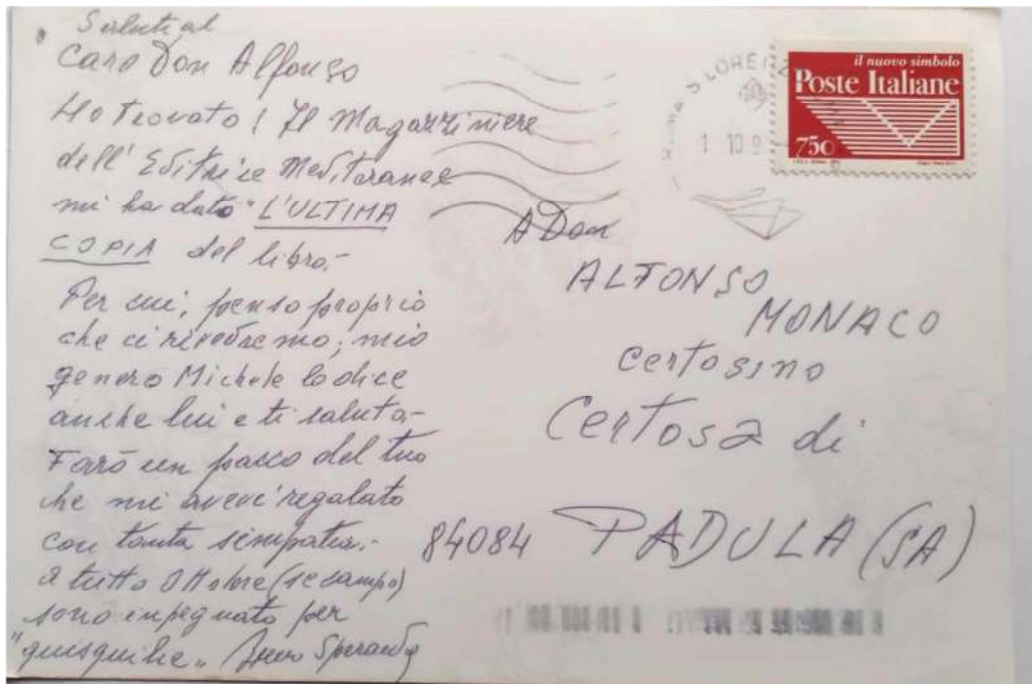 Saluti al
Caro Don Alfonso
Ho trovato! Il Magazziniere
dell'Editrice Mediteranee
mi ha dato "L'ULTIMA
COPIA del libro.-
Per cui, penso proprio
che ci rivedremo; mio
genero Michele lo dice
anche lui e ti saluta.-
Farò un pacco del tuo
che mi avevi regalato
con tanta simpatia.-
A tutto Ottobre (se campo)
sono impegnato per
"quisquilie„
il nuovo simbolo
Poste Italiane
750
ROMA S. LORENZO
1 10 9
A Don
ALFONSO
MONACO
certosino
Certosa di
84084 PADULA (SA)